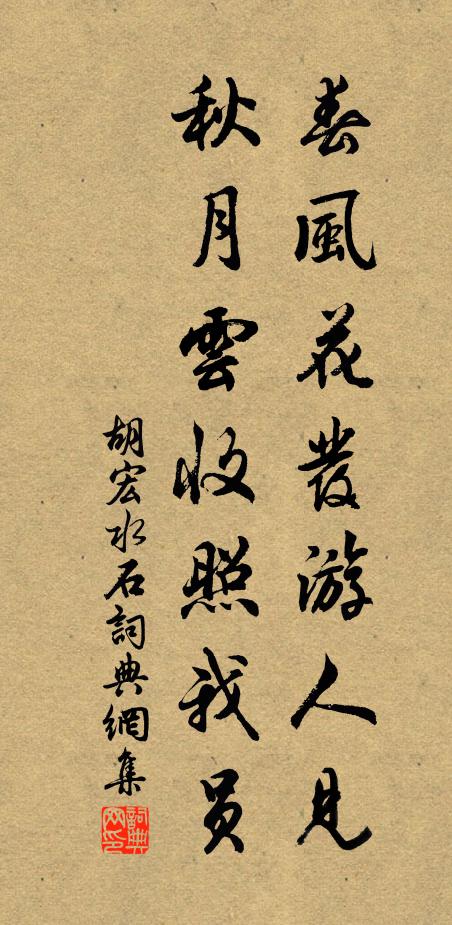 春風花發游人見
秋月雲收照我員
胡宏水石詞典網集
詞典網印